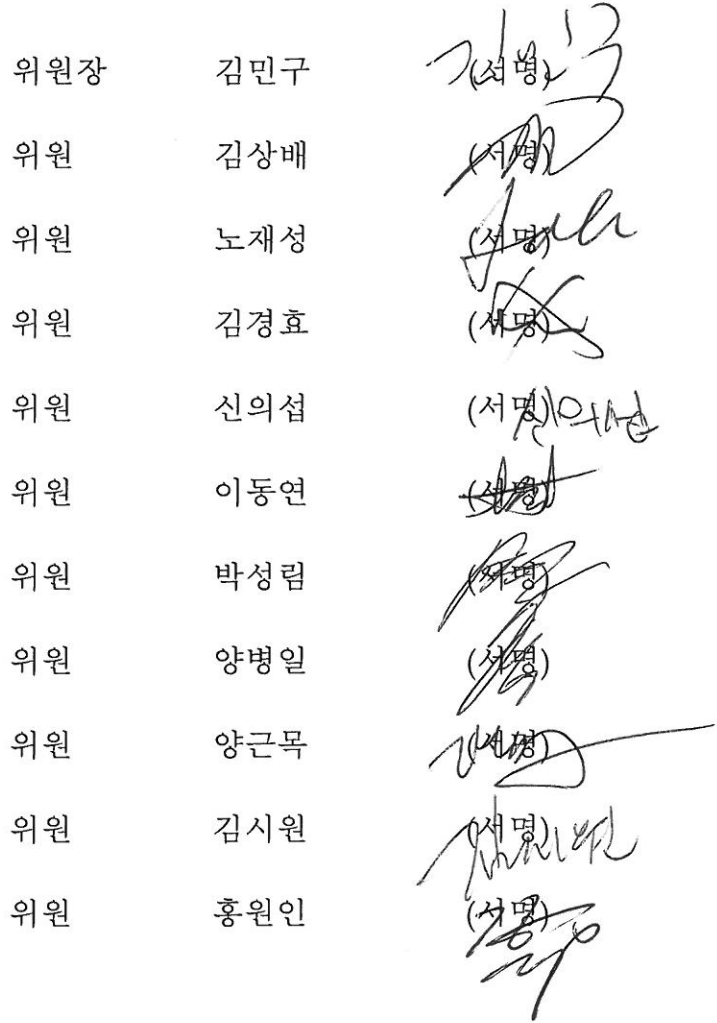 위원장 김민구 (서명)
위원 김상배 (서명)
위원 노재성 (서명)
위원 김경효 (서명)
위원 신의섭 (서명) 신의섭
위원 이동연 (서명)
위원 박성림 (서명)
위원 양병일 (서명)
위원 양근목 (서명)
위원 김시원 (서명) 김시원
위원 홍원인 (서명)